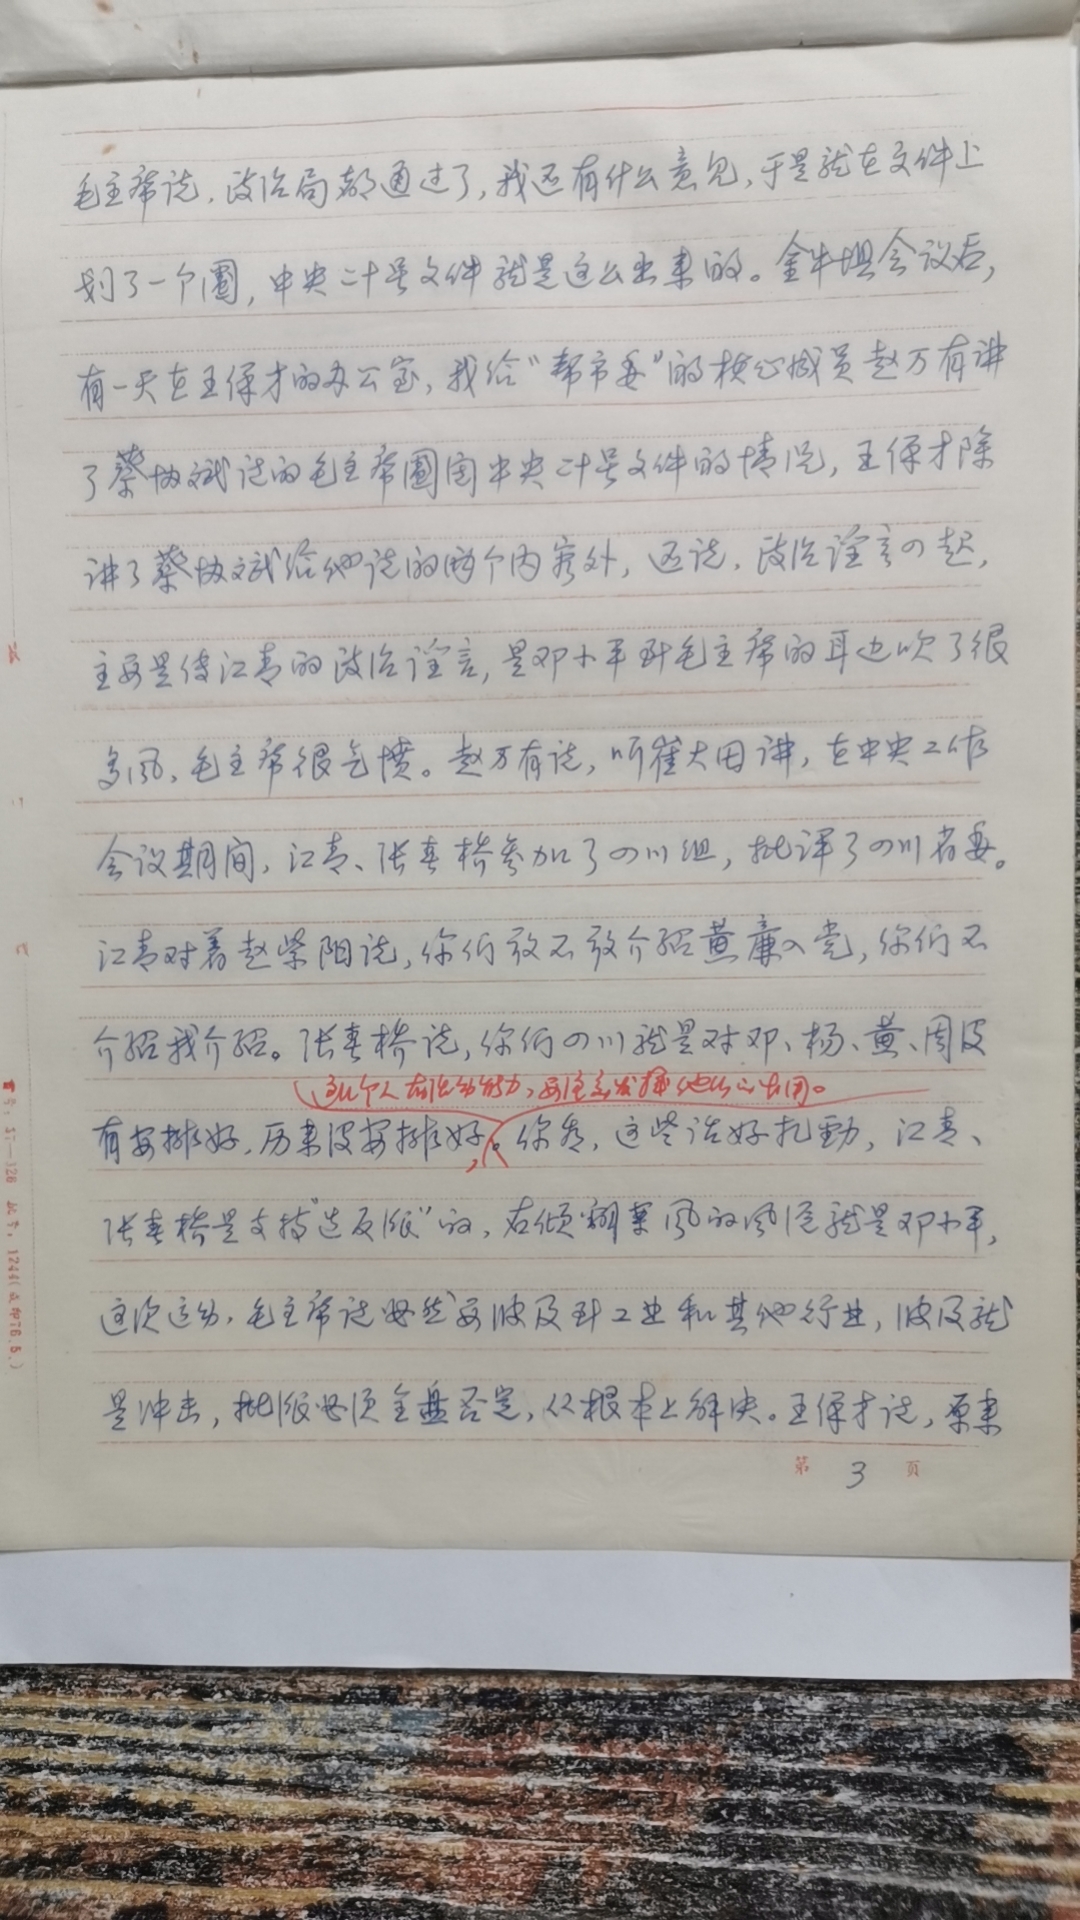 毛主席说，政治局都通过了，我还有什么意见，于是就在文件上
划了一个圈，中央二十号文件就是这么出来的。金牛坝会议后，
有一天在王保才的办公室，我给"帮市委"的核心成员赵万有讲
了蔡协斌说的毛主席圈阅中央二十号文件的情况，王保才除
讲了蔡协斌给他说的两个内容外，还说，政治谣言四起，
主要是传江青的政治谣言，是邓小平到毛主席的耳边吹了很
多风，毛主席很气愤。赵万有说，听崔大田讲，在中央工作
会议期间，江青、张春桥参加了四川组，批评了四川省委。
江青对着赵紫阳说，你们敢不敢介绍黄廉入党，你们不
介绍我介绍。张春桥说，你们四川就是对邓、杨、黄、周没
这几个人有活动能力，要注意发挥他们的作用。
有安排好，历来没安排好。你看，这些话好扎劲，江青、
张春桥是支持"造反派"的，右倾翻案风的风源就是邓小平，
这次运动，毛主席说必然要波及到工业和其他行业，波及就
是冲击，批派必须全盘否定，从根本上解决。王保才说，原来
第 3 页